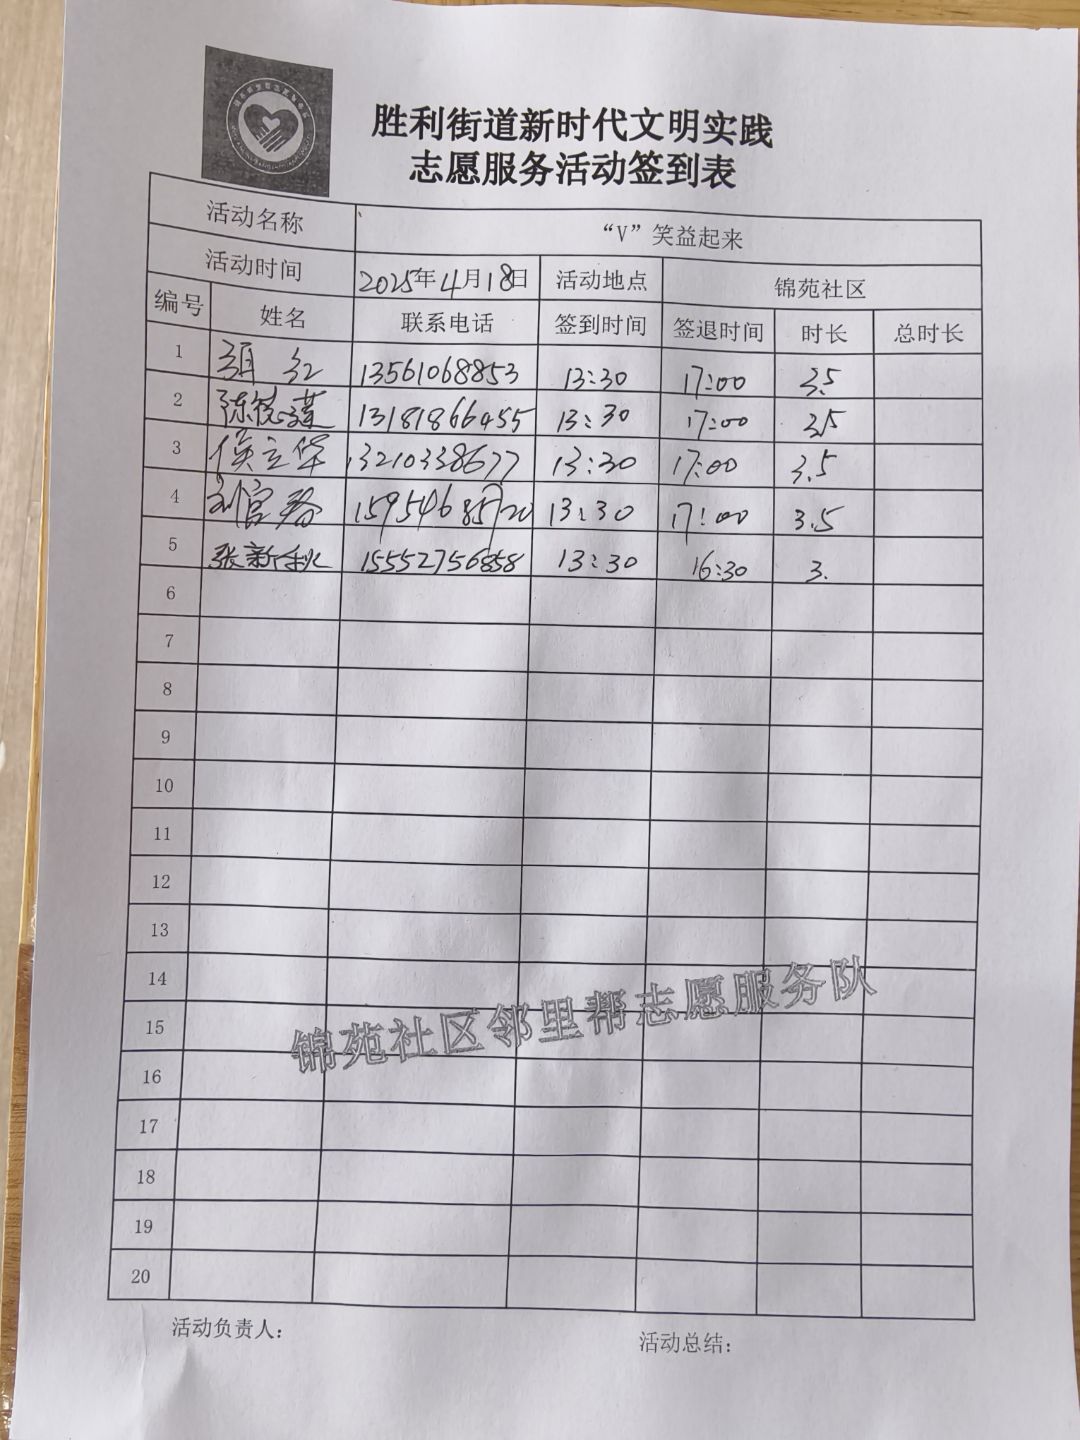 胜利街道新时代文明实践
志愿服务活动签到表
活动名称 “V”笑益起来
活动时间 2025年4月18日 活动地点 锦苑社区
编号 姓名 联系电话 签到时间 签退时间 时长 总时长
1 红 13561068853 13:30 17:00 3.5
2 陈 13181866455 13:30 17:00 3.5
3 侯立华 13210338677 13:30 17:00 3.5
4 刘官 15954685720 13:30 17:00 3.5
5 张新秋 15552756858 13:30 16:30 3.
6
7
8
9
10
11
12
13
14
15
16
17
18
19
20
锦苑社区邻里帮志愿服务队
活动负责人： 活动总结：